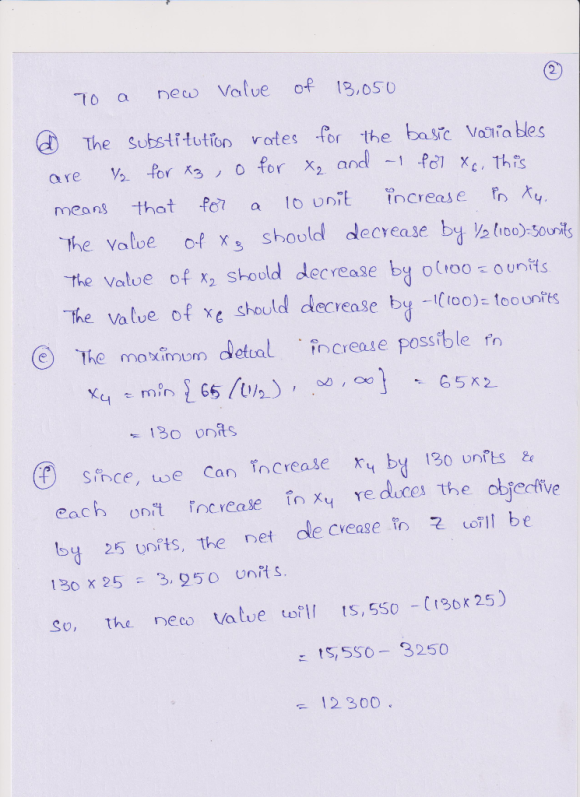 2
To a new value of 13,050
d The substitution rates for the basic variables
are ½ for x3, 0 for x2 and -1 for x6. This
means that for a 10 unit increase in x4.
The value of x3 should decrease by ½(100)=50units
The value of x2 should decrease by 0(100 = 0units
The value of x6 should decrease by -1(100)= 100units
e The maximum detual increase possible in
x4 = min { 65/(1/2), ∞, ∞} = 65x2
= 130 units
f Since, we can increase x4 by 130 units &
each unit increase in x4 reduces the objective
by 25 units, The net decrease in Z will be
130 x 25 = 3,250 units.
So, The new value will 15,550 - (130x25)
= 15,550 - 3250
= 12300.